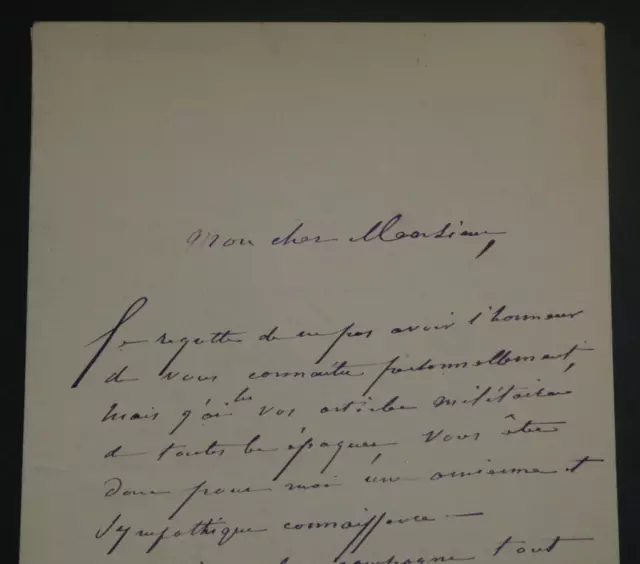 Mon cher Monsieur,
Je regrette de ne pas avoir l'honneur
de vous connaître personnellement,
mais j'ai lu vos articles militaires
de toutes les époques, vous êtes
donc pour moi une ancienne et
sympathique connaissance —
campagne tout